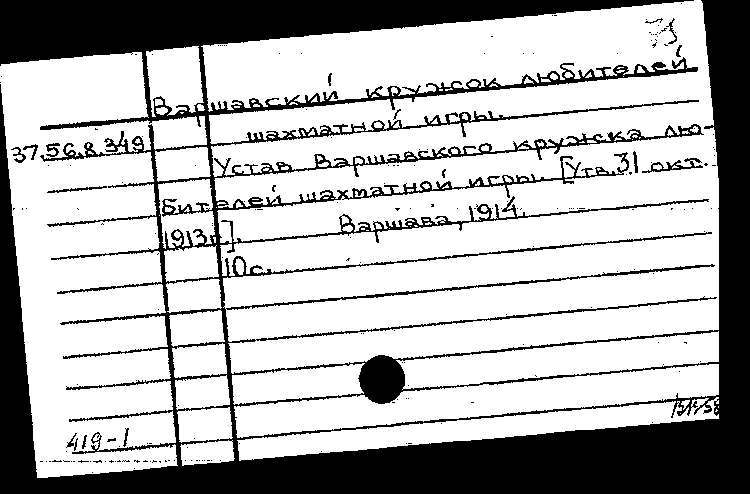 Варшавский кружок любителей
шахматной игры.
37.56.8.349
Устав Варшавского кружка лю-
бителей шахматной игры. [Утв. 31 окт.
1913г.]. Варшава, 1914.
10с.
419-1